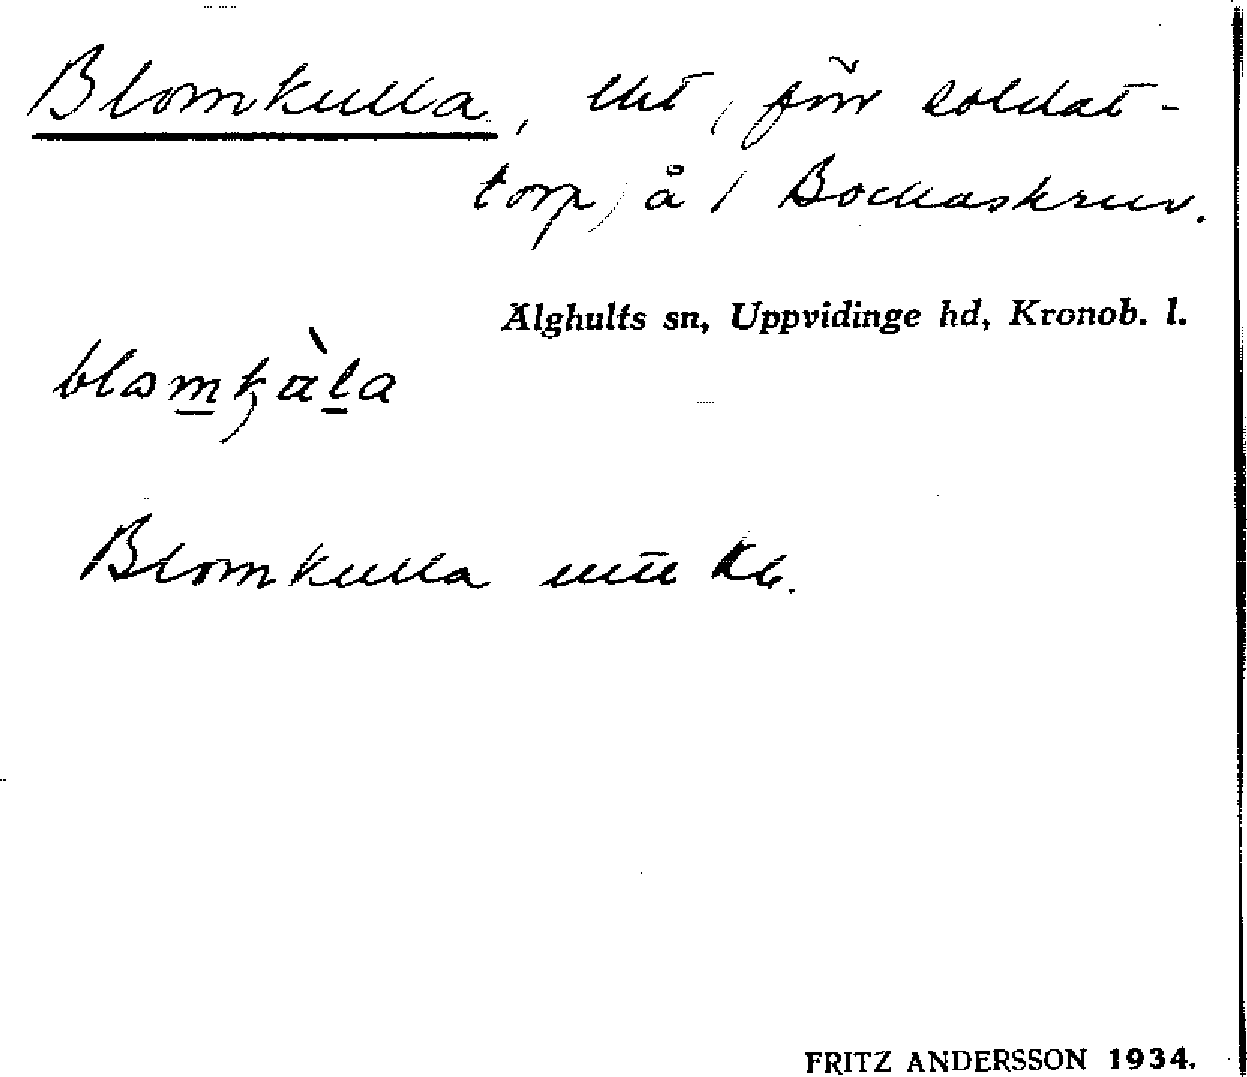 Blomkulla, lht (förr soldat-
torp) å 1 Bockaskruv.
Älghults sn, Uppvidinge hd, Kronob. l.
Blomkulla
FRITZ ANDERSSON 1934.